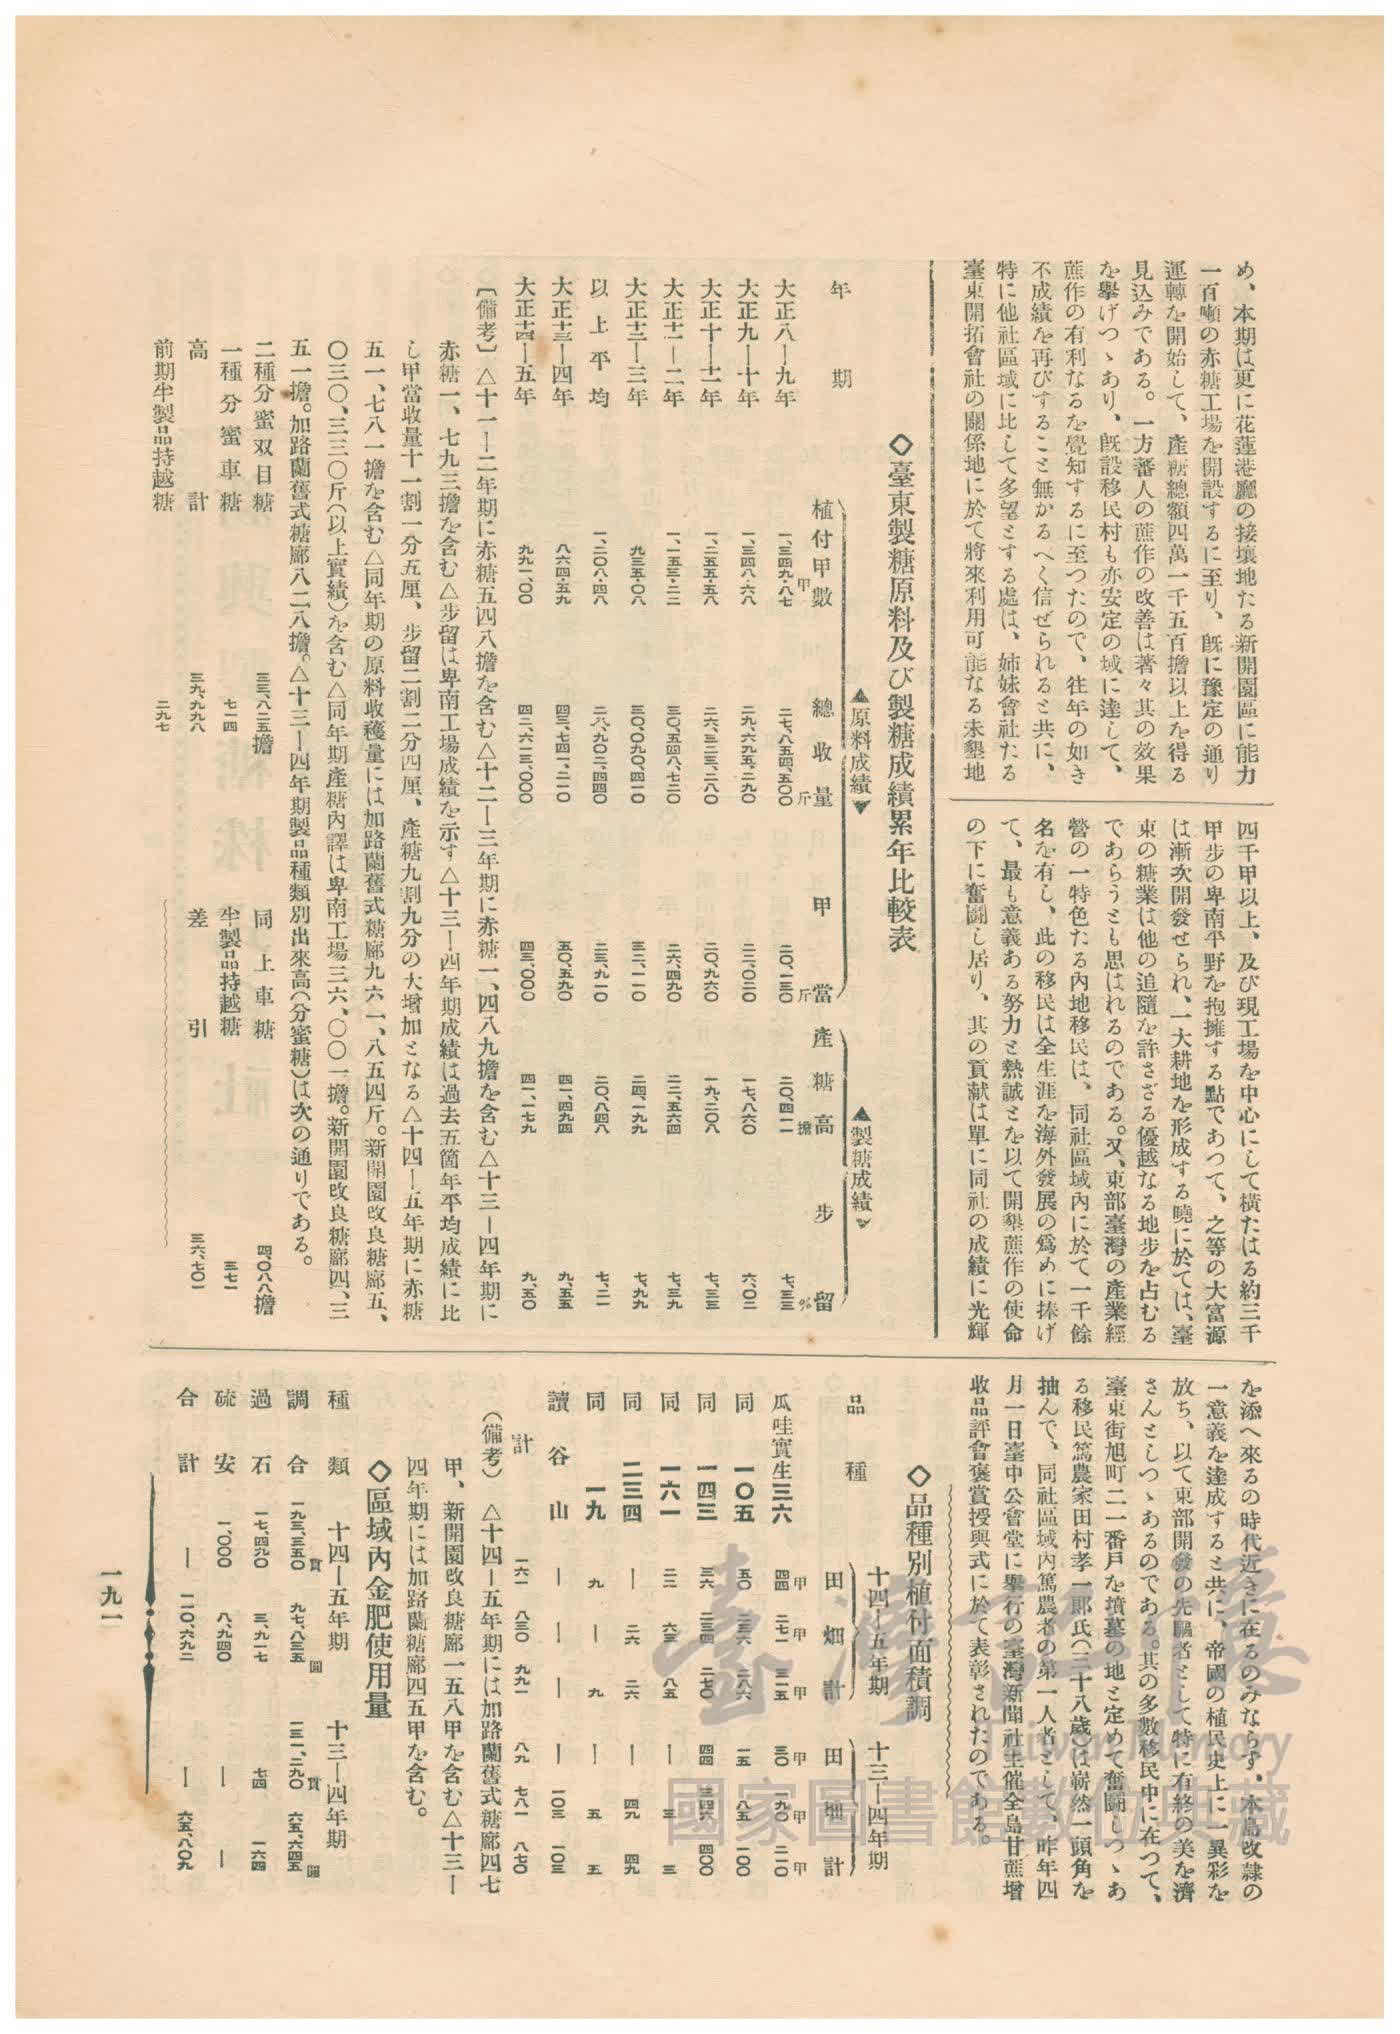 め、本期は更に花蓮港廳の接壤地たる新開園區に能力
一百噸の赤糖工場を開設するに至り、既に豫定の通り
運轉を開始して、產糖總額四萬一千五百擔以上を得る
見込みである。一方蕃人の蔗作の改善は著々其の效果
を擧げつゝあり、既設移民村も亦安定の域に達して、
蔗作の有利なるを覺知するに至つたので、往年の如き
不成績を再びすること無かるべく信ぜられると共に、
特に他社區域に比して多望とする處は、姉妹會社たる
臺東開拓會社の關係地に於て將來利用可能なる未墾地
四千甲以上、及び現工場を中心にして橫たはる約三千
甲步の卑南平野を抱擁する點であつて、之等の大富源
は漸次開發せられ、一大耕地を形成する曉に於ては、臺
東の糖業は他の追隨を許さざる優越なる地步を占むる
であらうとも思はれるのである。又、東部臺灣の產業經
營の一特色たる內地移民は、同社區域內に於て一千餘
名を有し、此の移民は全生涯を海外發展の爲めに捧げ
て、最も意義ある努力と熱誠とを以て開墾蔗作の使命
の下に奮鬪し居り、其の貢獻は單に同社の成績に光輝
を添へ來るの時代近きに在るのみならず、本島改隸の
一意義を達成すると共に、帝國の植民史上に一異彩を
放ち、以て東部開發の先驅者として特に有終の美を濟
さんとしつゝあるのである。其の多數移民中に在つて、
臺東街旭町二一番戶を墳墓の地と定めて奮鬪しつゝあ
る移民篤農家田村孝一郎氏(三十八歲)は嶄然一頭角を
抽んで、同社區域內篤農者の第一人者として、昨年四
月一日臺中公會堂に擧行の臺灣新聞社主催全島甘蔗增
收品評會褒賞授與式に於て表彰されたのである。
◇臺東製糖原料及び製糖成績累年比較表
▲原料成績▼ ▲製糖成績▼
年期 植付甲數 總收量 甲當 產糖高 步留
甲 斤 斤 擔 %
大正八―九年 一、三四九・八七 二七、八五四、五〇〇 二〇、一三〇 二〇、四一一 七、三三
大正九―十年 一、三四八・六八 二九、六九五、二九〇 二二、〇二〇 一七、八六〇 六、〇二
大正十―十一年 一、二五五・五八 二六、三二三、二八〇 二〇、九六〇 一九、二〇八 七、三三
大正十一―二年 一、一五三・二二 三〇、五四八、七二〇 二六、四九〇 二二、五六四 七、三九
大正十二―三年 九三五・〇八 三〇、〇九〇、四一〇 三二、一一〇 二四、一九九 七、九九
以上平均 一、二〇八・四八 二八、九〇二、四四〇 二三、九一〇 二〇、八四八 七、二一
大正十三―四年 八六四・五九 四三、七四一、二一〇 五〇、五九〇 四一、四九四 九、五五
大正十四―五年 九九一、〇〇 四二、六一三、〇〇〇 四三、〇〇〇 四一、一七九 九、五〇
〔備考〕△十一―二年期に赤糖五四八擔を含む△十二―三年期に赤糖一、四八九擔を含む△十三―四年期に
赤糖一、七九三擔を含む△步留は卑南工場成績を示す△十三―四年期成績は過去五箇年平均成績に比
し甲當收量十一割一分五厘、步留二割二分四厘、產糖九割九分の大增加となる△十四―五年期に赤糖
五一、七八一擔を含む△同年期の原料收穫量には加路蘭舊式糖廍九六一、八五四斤。新開園改良糖廍五、
〇三〇、三三〇斤(以上實績)を含む△同年期產糖內譯は卑南工場三六、〇〇一擔。新開園改良糖廍四、三
五一擔。加路蘭舊式糖廍八二八擔。△十三―四年期製品種類別出來高(分蜜糖)は次の通りである。
二種分蜜双目糖 三三、八二五擔 同上車糖 四、〇八八擔
一種分蜜車糖 七一四 半製品持越糖 三七一
高計 三九、九九八 差引 三六、七〇一
前期半製品持越糖 二九七
◇品種別植付面積調
十四―五年期 十三―四年期
品種 田 畑 計 田 畑 計
甲 甲 甲 甲 甲 甲
瓜哇實生三六 四四 二七一 三一五 三〇 一九〇 二二〇
同 一〇五 五〇 二三六 二八六 一五 八五 一〇〇
同 一四三 三六 二三四 二七〇 四四 三四六 四〇〇
同 一六一 二二 六三 八五 ― 三 三
同 二三四 ― 二六 二六 ― 四九 四九
同 一九 九 ― 九 ― 五 五
讀谷山 ― ― ― ― 一〇三 一〇三
計 一六一 八三〇 九九一 八九 七八一 八七〇
(備考) △十四―五年期には加路蘭舊式糖廍四七
甲、新開園改良糖廍一五八甲を含む△十三―
四年期には加路蘭糖廍四五甲を含む。
◇區域內金肥使用量
種類 十四―五年期 十三―四年期
貫 圓 貫 圓
調合 一九三、三五〇 九七、八三五 一三一、二九〇 六五、六四五
過石 一七、四九〇 三、九一七 七四 一六四
硫安 一、〇〇〇 八、九四〇 ― ―
合計 ― 一一〇、六九二 ― 六五、八〇九
一九一
臺灣記憶
Taiwan Memory
國家圖書館數位典藏